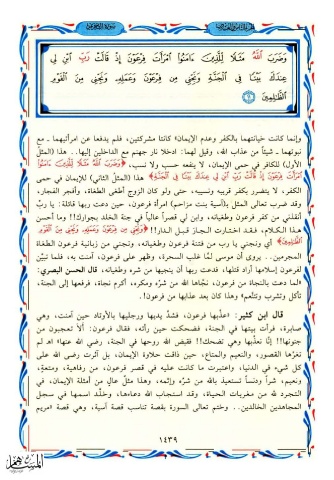 وَضَرَبَ ٱللَّهُ مَثَلًا لِّلَّذِينَ ءَامَنُوا۟ ٱمْرَأَتَ فِرْعَوْنَ إِذْ قَالَتْ رَبِّ ٱبْنِ لِى
عِندَكَ بَيْتًا فِى ٱلْجَنَّةِ وَنَجِّنِى مِن فِرْعَوْنَ وَعَمَلِهِۦ وَنَجِّنِى مِنَ ٱلْقَوْمِ
ٱلظَّٰلِمِينَ
وإنما كانت خيانتهما بالكفر وعدم الإيمان، كانتا مشركتين، فلم يدفعا عن امرأتيهما ـ مع
نبوتهما ـ شيئاً من عذاب الله، وقيل لهما: ادخلا نار جهنم مع الداخلين إليها.. هذا (المثل
الأول) للكافر في حمى الإيمان، لا ينفعه حسب ولا نسب، ﴿وَضَرَبَ ٱللَّهُ مَثَلًا لِّلَّذِينَ ءَامَنُوا۟
ٱمْرَأَتَ فِرْعَوْنَ إِذْ قَالَتْ رَبِّ ٱبْنِ لِى عِندَكَ بَيْتًا فِى ٱلْجَنَّةِ﴾ هذا (المثل الثاني) للإيمان في حمى
الكفر، لا يتضرر بكفر قريبه ونسيبه، حتى ولو كان الزوج أطغى الطغاة، وأفجر الفجار،
وقد ضرب تعالى المثل بـ(آسية بنت مزاحم) امرأة فرعون، حين دعت ربها قائلة: يا ربّ
أنقذني من كفر فرعون وطغيانه، وابن لي قصراً عالياً في جنة الخلد بجوارك!! وما أحسن
هذا الكلام، فقد اختارت الجار قبل الدار!! ﴿وَنَجِّنِى مِن فِرْعَوْنَ وَعَمَلِهِۦ وَنَجِّنِى مِنَ ٱلْقَوْمِ
ٱلظَّٰلِمِينَ﴾ أي ونجني يا رب من فتنة فرعون وطغيانه، ونجني من زبانية فرعون الطغاة
المجرمين.. يروى أن موسى لما غلب السحرة، وظهر على فرعون، آمنت به، فلما تبيّن
لفرعون إسلامها أراد قتلها، فدعت ربها أن ينجيها من شره وطغيانه، قال الحسن البصري:
«لما دعت بالنجاة من فرعون، نجّاها الله من شرّه ومكره، أكرم نجاة، فرفعها إلى الجنة،
تأكل وتشرب وتتنعّم» وهذا كان بعد عذابها من فرعون!.
قال ابن كثير: «عذّبها فرعون، فشدّ يديها ورجليها بالأوتاد حين آمنت، وهي
صابرة، فرأت بيتها في الجنة، فضحكت حين رأته، فقال فرعون: ألا تعجبون من
جنونها!! إنّا نعذّبها وهي تضحك!! فقبض الله روحها في الجنة، رضي الله عنها» اهـ لم
تغرّها القصور، والنعيم والمتاع، حين ذاقت حلاوة الإيمان، بل آثرت رضى الله على
كل شيء في الدنيا، واعتبرت ما كانت عليه في قصر فرعون، من رفاهية، ومتعةٍ،
ونعيم، شراً ودنساً تستعيذ بالله من شرّه وإثمه، وهذا مثل عالٍ من أمثلة الإيمان، في
التجرد لله من مغريات الحياة، وقد استجاب الله دعاءها، وخلّد اسمها في سجل
المجاهدين الخالدين.. وختم تعالى السورة بقصة تناسب قصة آسية، وهي قصة «مريم
١٤٣٩